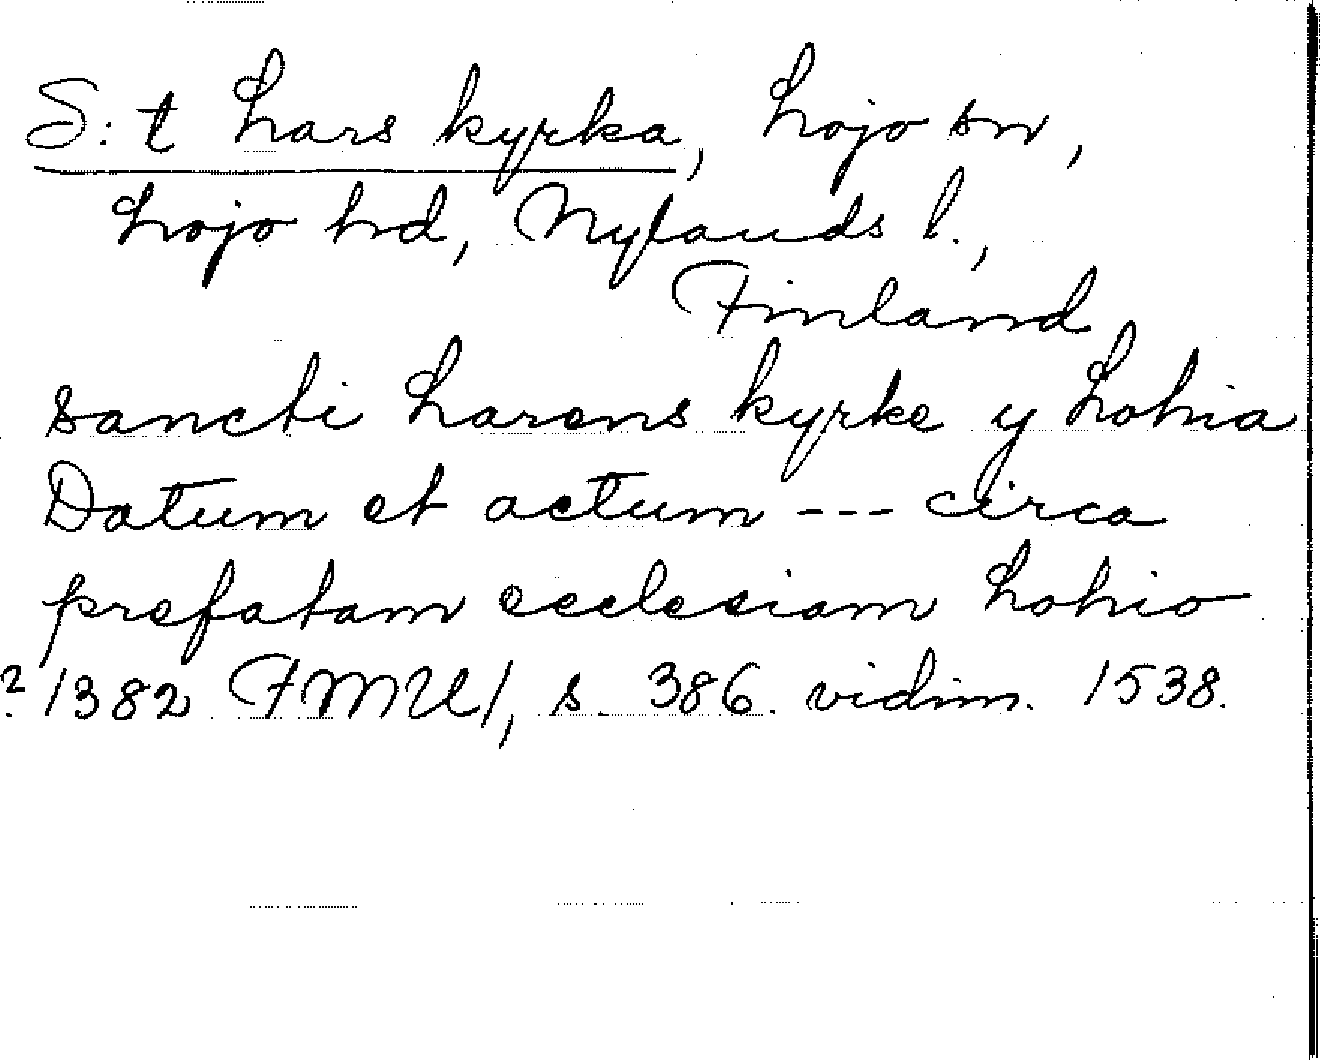 S:t Lars kyrka, Lojo sn,
Lojo hd, Nylands l.,
Finland
sancti Larens kyrke y Lohia
Datum et actum --- circa
prefatam ecclesiam Lohio
? 1382 FMU 1, s. 386. vidim. 1538.